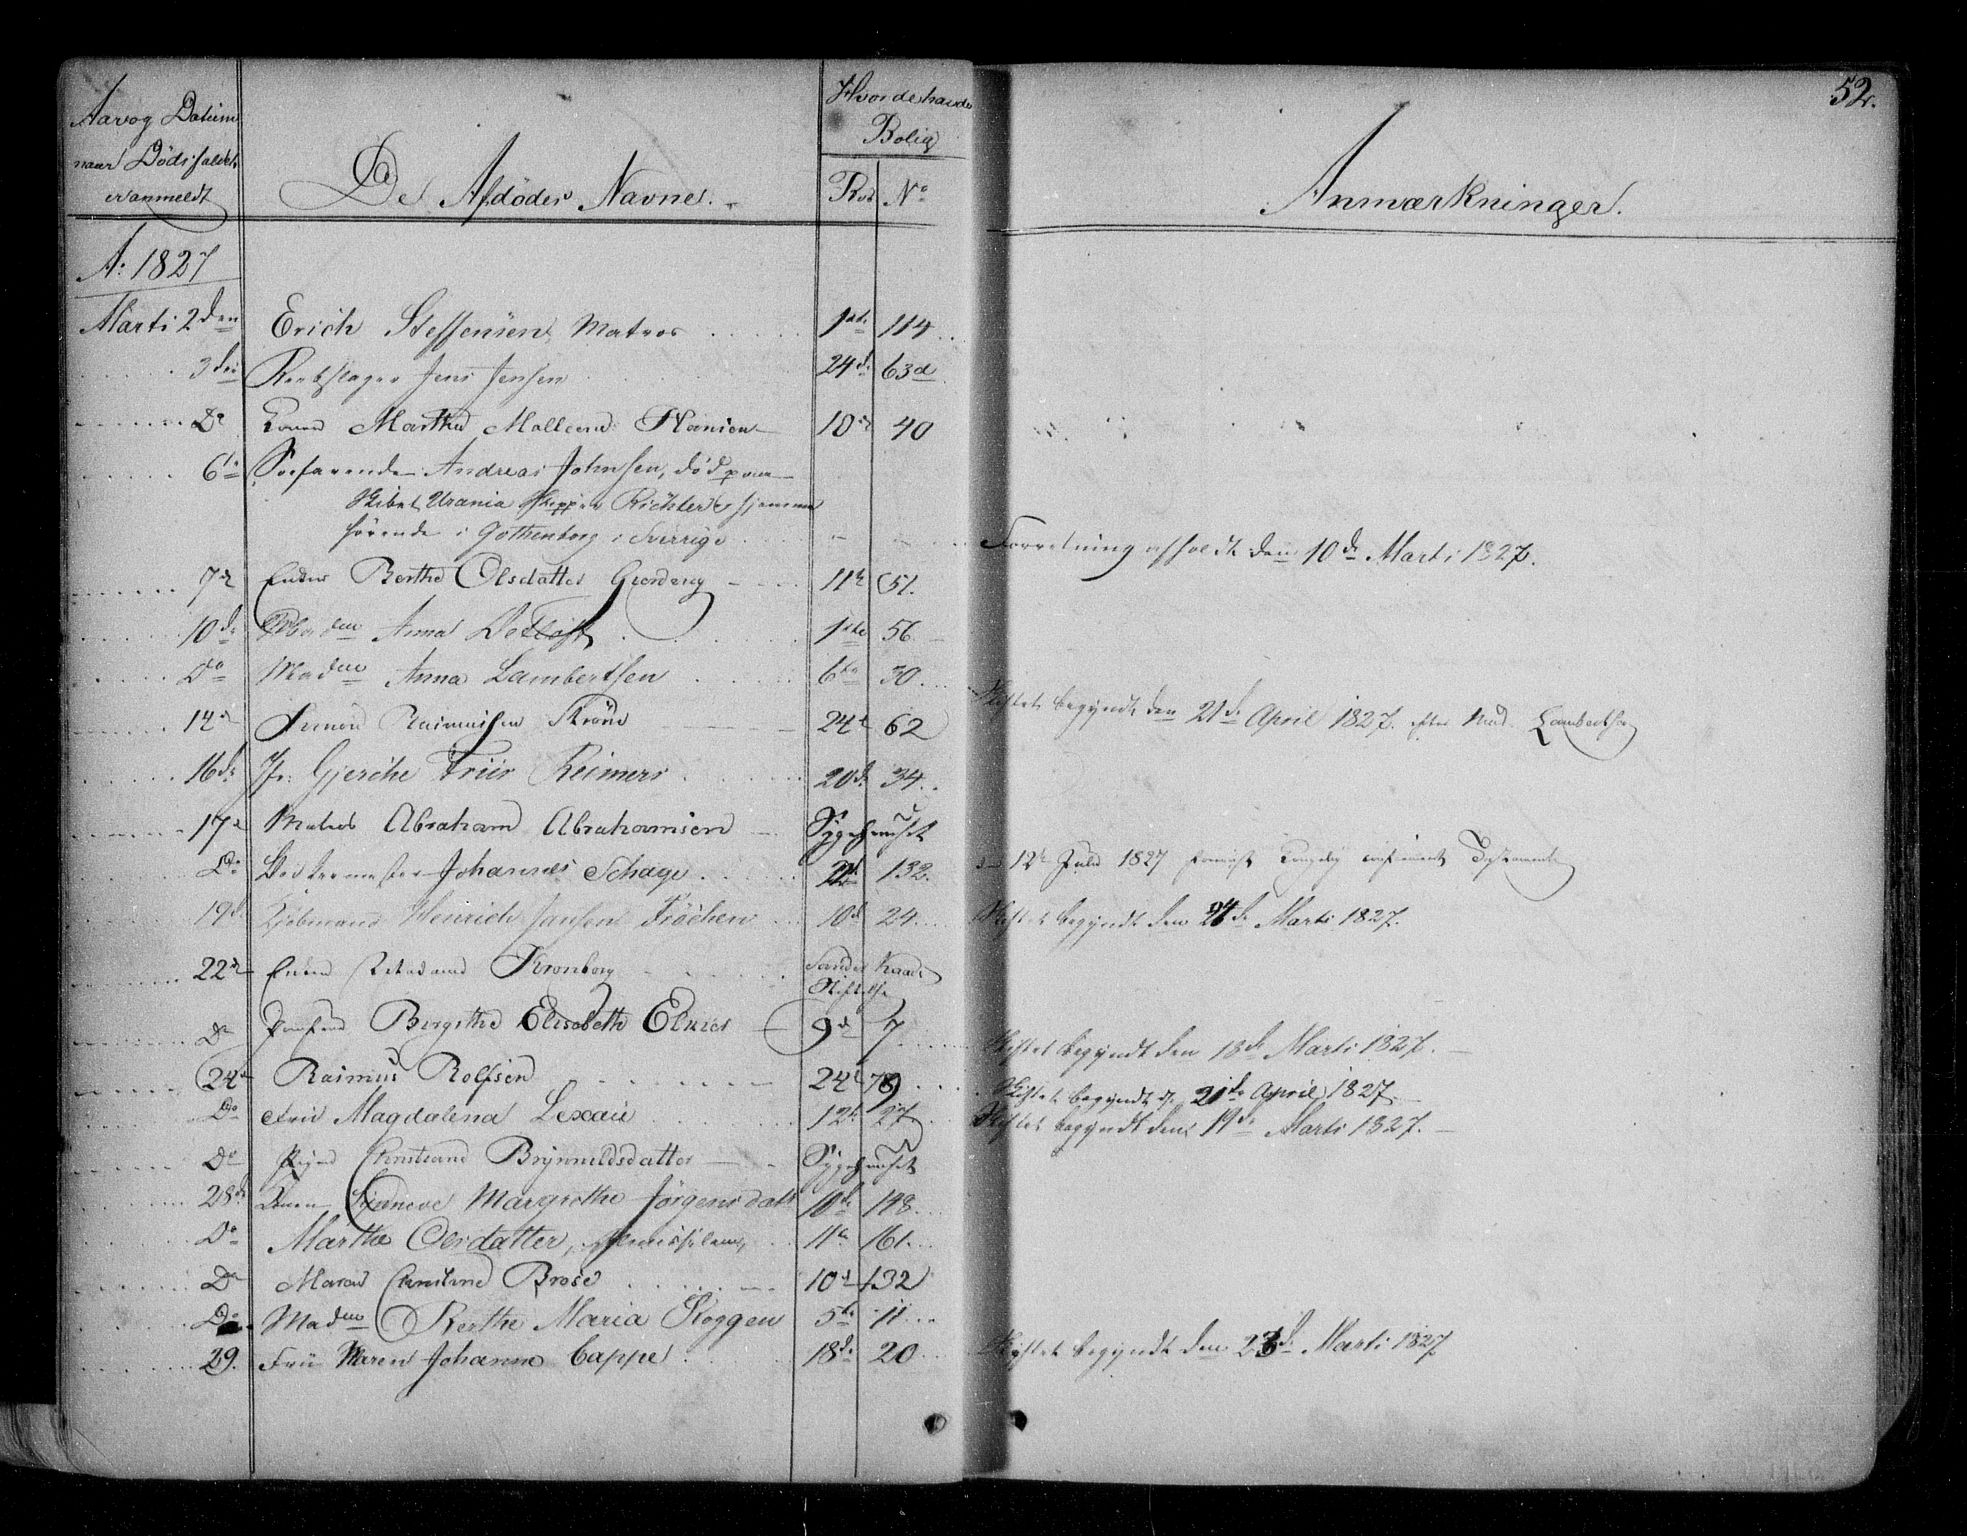 52.
Aar og Datum
naar Dødsfaldet
er anmeldt
De Afdødes Navne.
Hvor de havde
Bolig
Rod No
Anmærkninger.
A: 1827
Marti 2den Erich Steffensen, Matros 1ste 114
3die Reebslager Jens Jensen 24de 63d
Do Konen Marthe Malleene Hansen 10de 40
6te Søefarende Andreas Johnsen, død paa
Skibet Urania Skipper Richter hjemme
hørende i Gothenborg i Sverrige Forretning afholdt den 10de Marti 1827.
7de Enken Berthe Olsdatter 11te 51.
10de Madme Anna Detloff 1ste 56
Do Madme Anna Lambertsen 6te 30 Skiftet begyndt den 21de April 1827. efter Mad. Lambertsen
14de Simon Rasmussen 24de 62
16de Jfr: Gjersche Friis Reimers 20de 34
17de Matros Abraham Abrahamsen Sygehuuset
Do Johannes Schage 132. 12te Julii 1827 Kongelig confirmeret Testamente
19de Kjøbmand Henrich Jansen Frøchen 10de 24 Skiftet begyndt den 24de Marti 1827.
22de Enken Kronborg
Stiftelse
Do Jomfrue Birgithe Elisabeth 9de 7 Skiftet begyndt den 18de Marti 1827.
24de Rasmus Rolfsen 24de 79 Skiftet begyndt d. 21de April 1827
Do Frue Magdalena Lexau 12te 27 Skiftet begyndt den 19de Marti 1827.
Do Pigen Christiane Brynnildsdatter Sygehuuset
28de Konen Margrethe Jørgensdatt 10de 148
Do Marthe Olsdatter, Almisselem, 11te 161.
Do Maren Christine Brose 10de 132
Do Madme Berthe Maria Roggen 5te 11
29. Frü Maren Johanna Cappe 18de 20 Skiftet begyndt den 23de Marti 1827